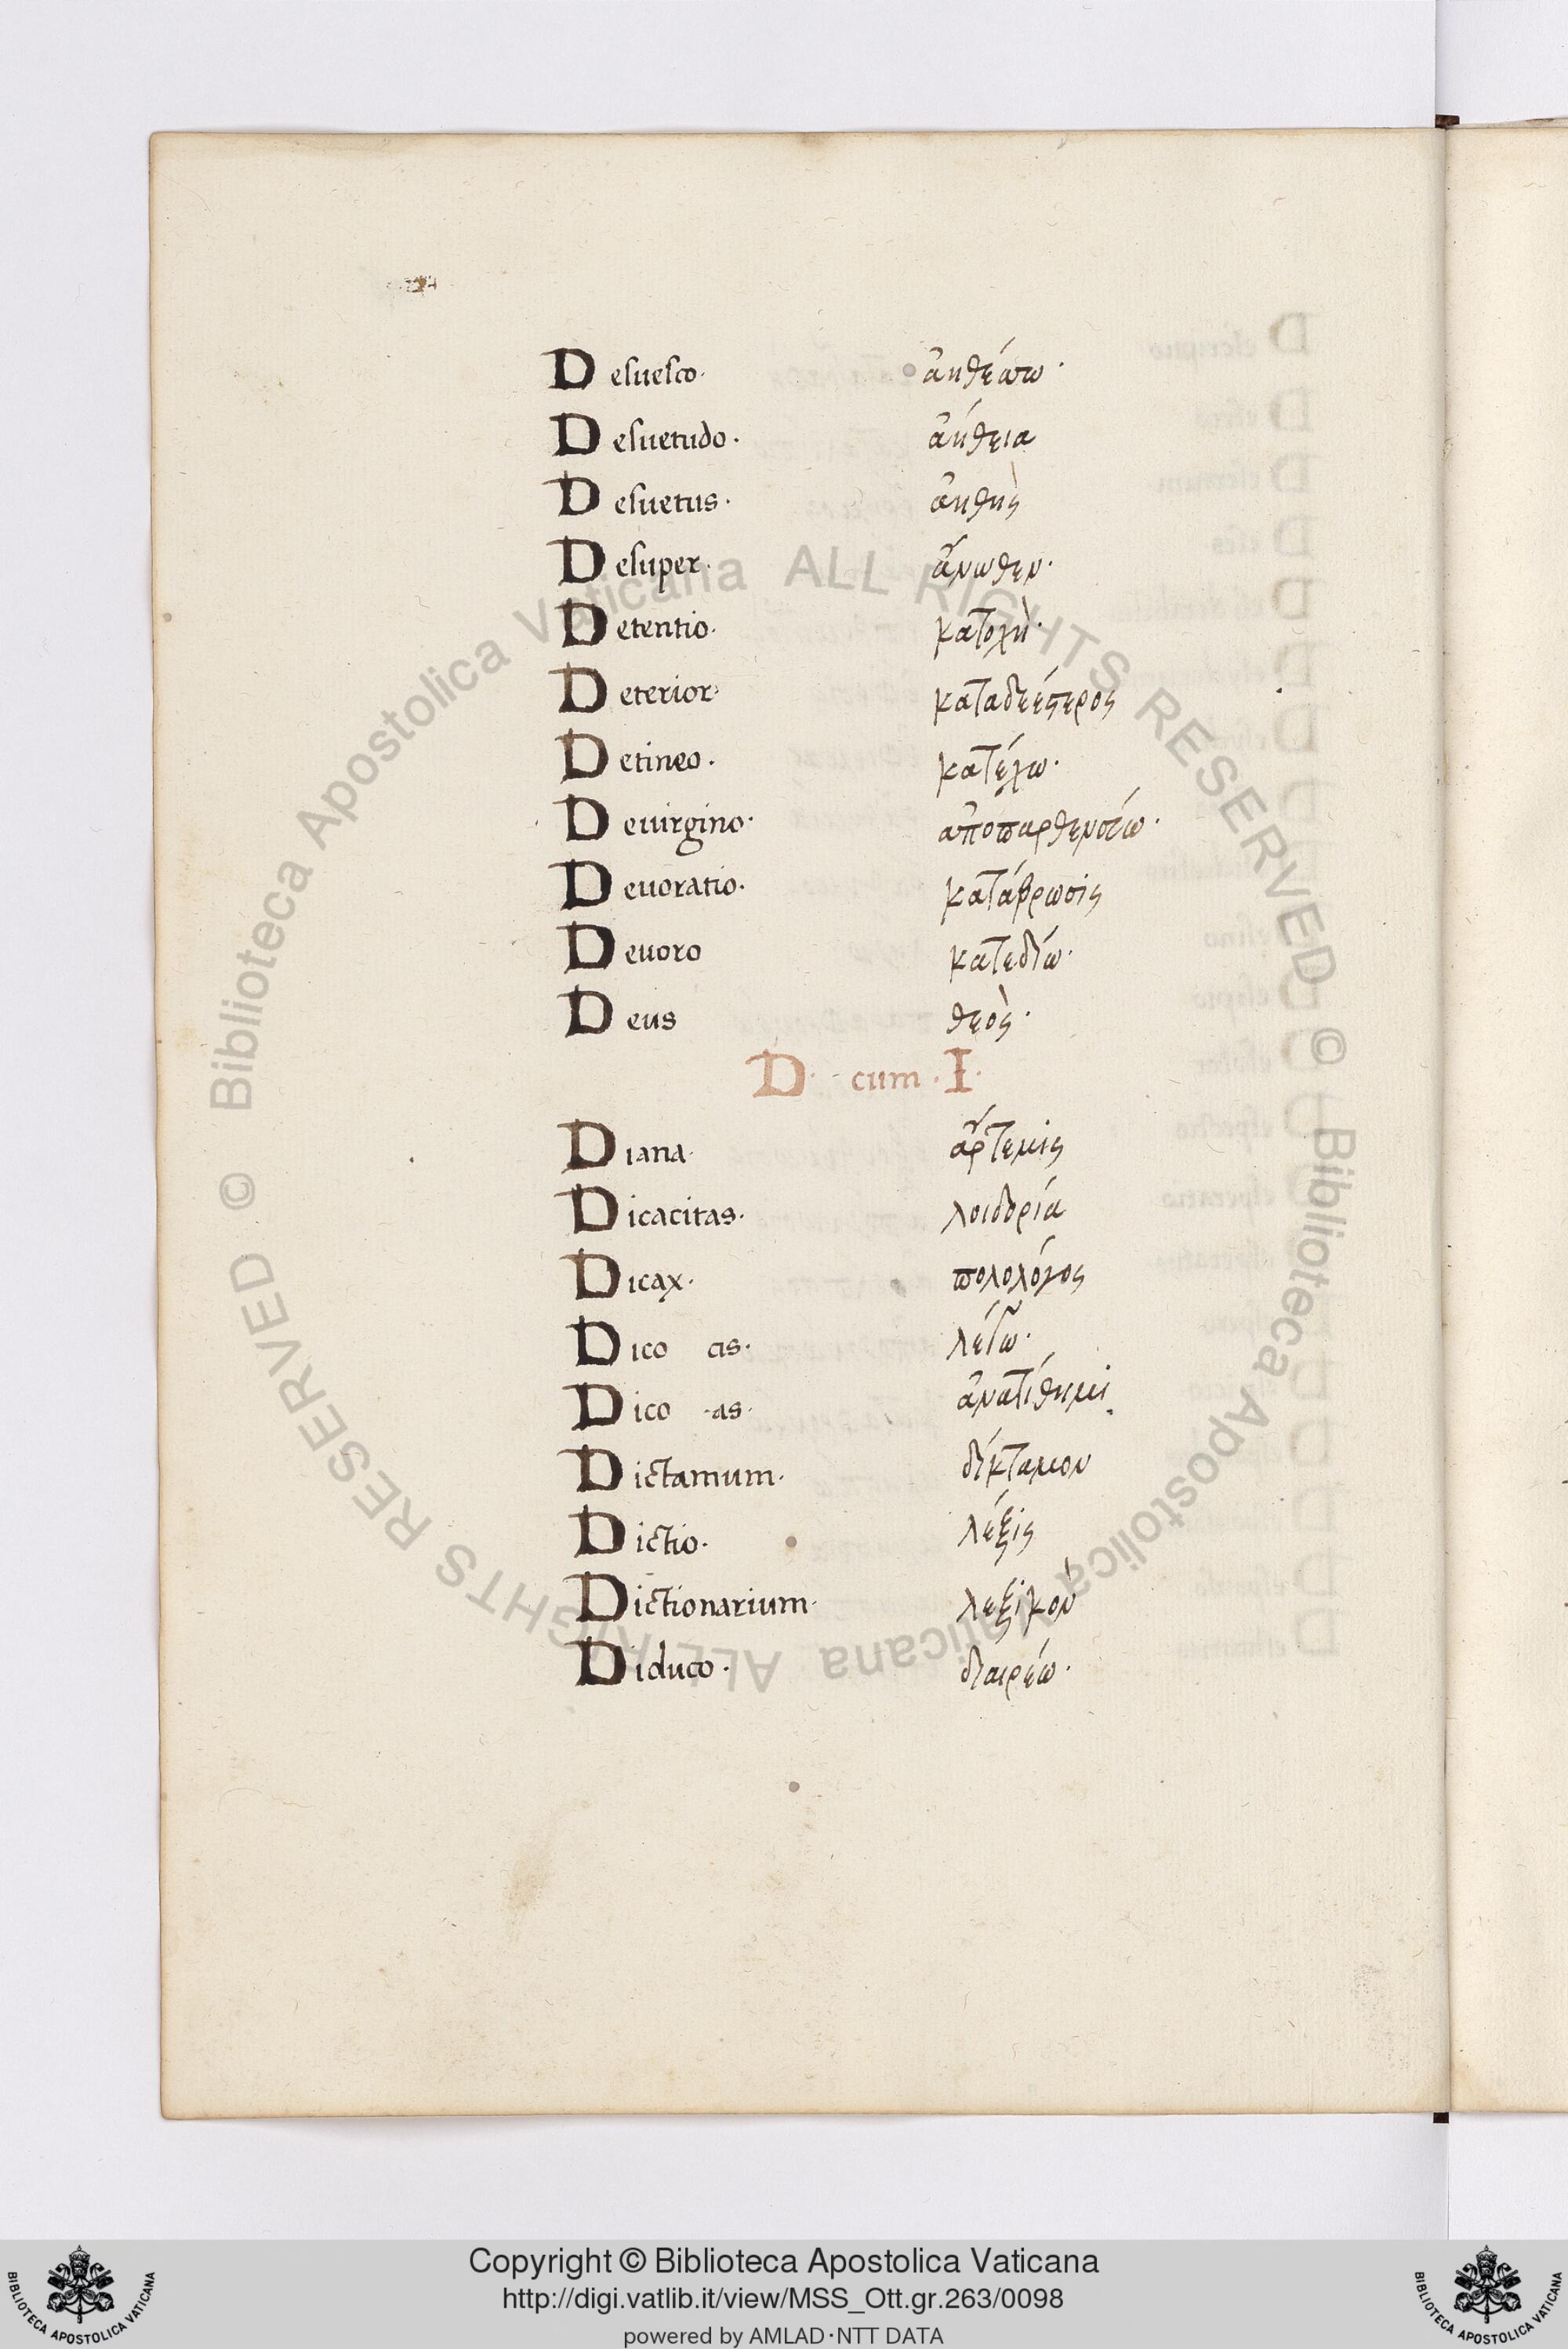 Desuesco· ἀηθέσσω·
Desuetudo· ἀήθεια
Desuetus· ἀηθὴς
Desuper· ἄνωθεν·
Detentio· κατοχὴ·
Deterior· καταδεέστερος
Detineo· κατέχω·
Deuirgino· ἀποπαρθενεύω·
Deuoratio· κατάβρωσις
Deuoro κατεδίω·
Deus θεὸς·
D· cum · I·
Diana· ἄρτεμις
Dicacitas· λοιδορία
Dicax· πολολόγος
Dico cis· λέγω·
Dico ·as· ἀνατίθημι
Dictamum· δίκταμον
Dictio· λέξις
Dictionarium· λεξικὸν
Diduco· διαιρέω·
Copyright © Biblioteca Apostolica Vaticana
http://digi.vatlib.it/view/MSS_Ott.gr.263/0098
powered by AMLAD·NTT DATA
BIBLIOTECA APOSTOLICA VATICANA
BIBLIOTECA APOSTOLICA VATICANA
© Biblioteca Apostolica Vaticana ALL RIGHTS RESERVED
© Biblioteca Apostolica Vaticana ALL RIGHTS RESERVED